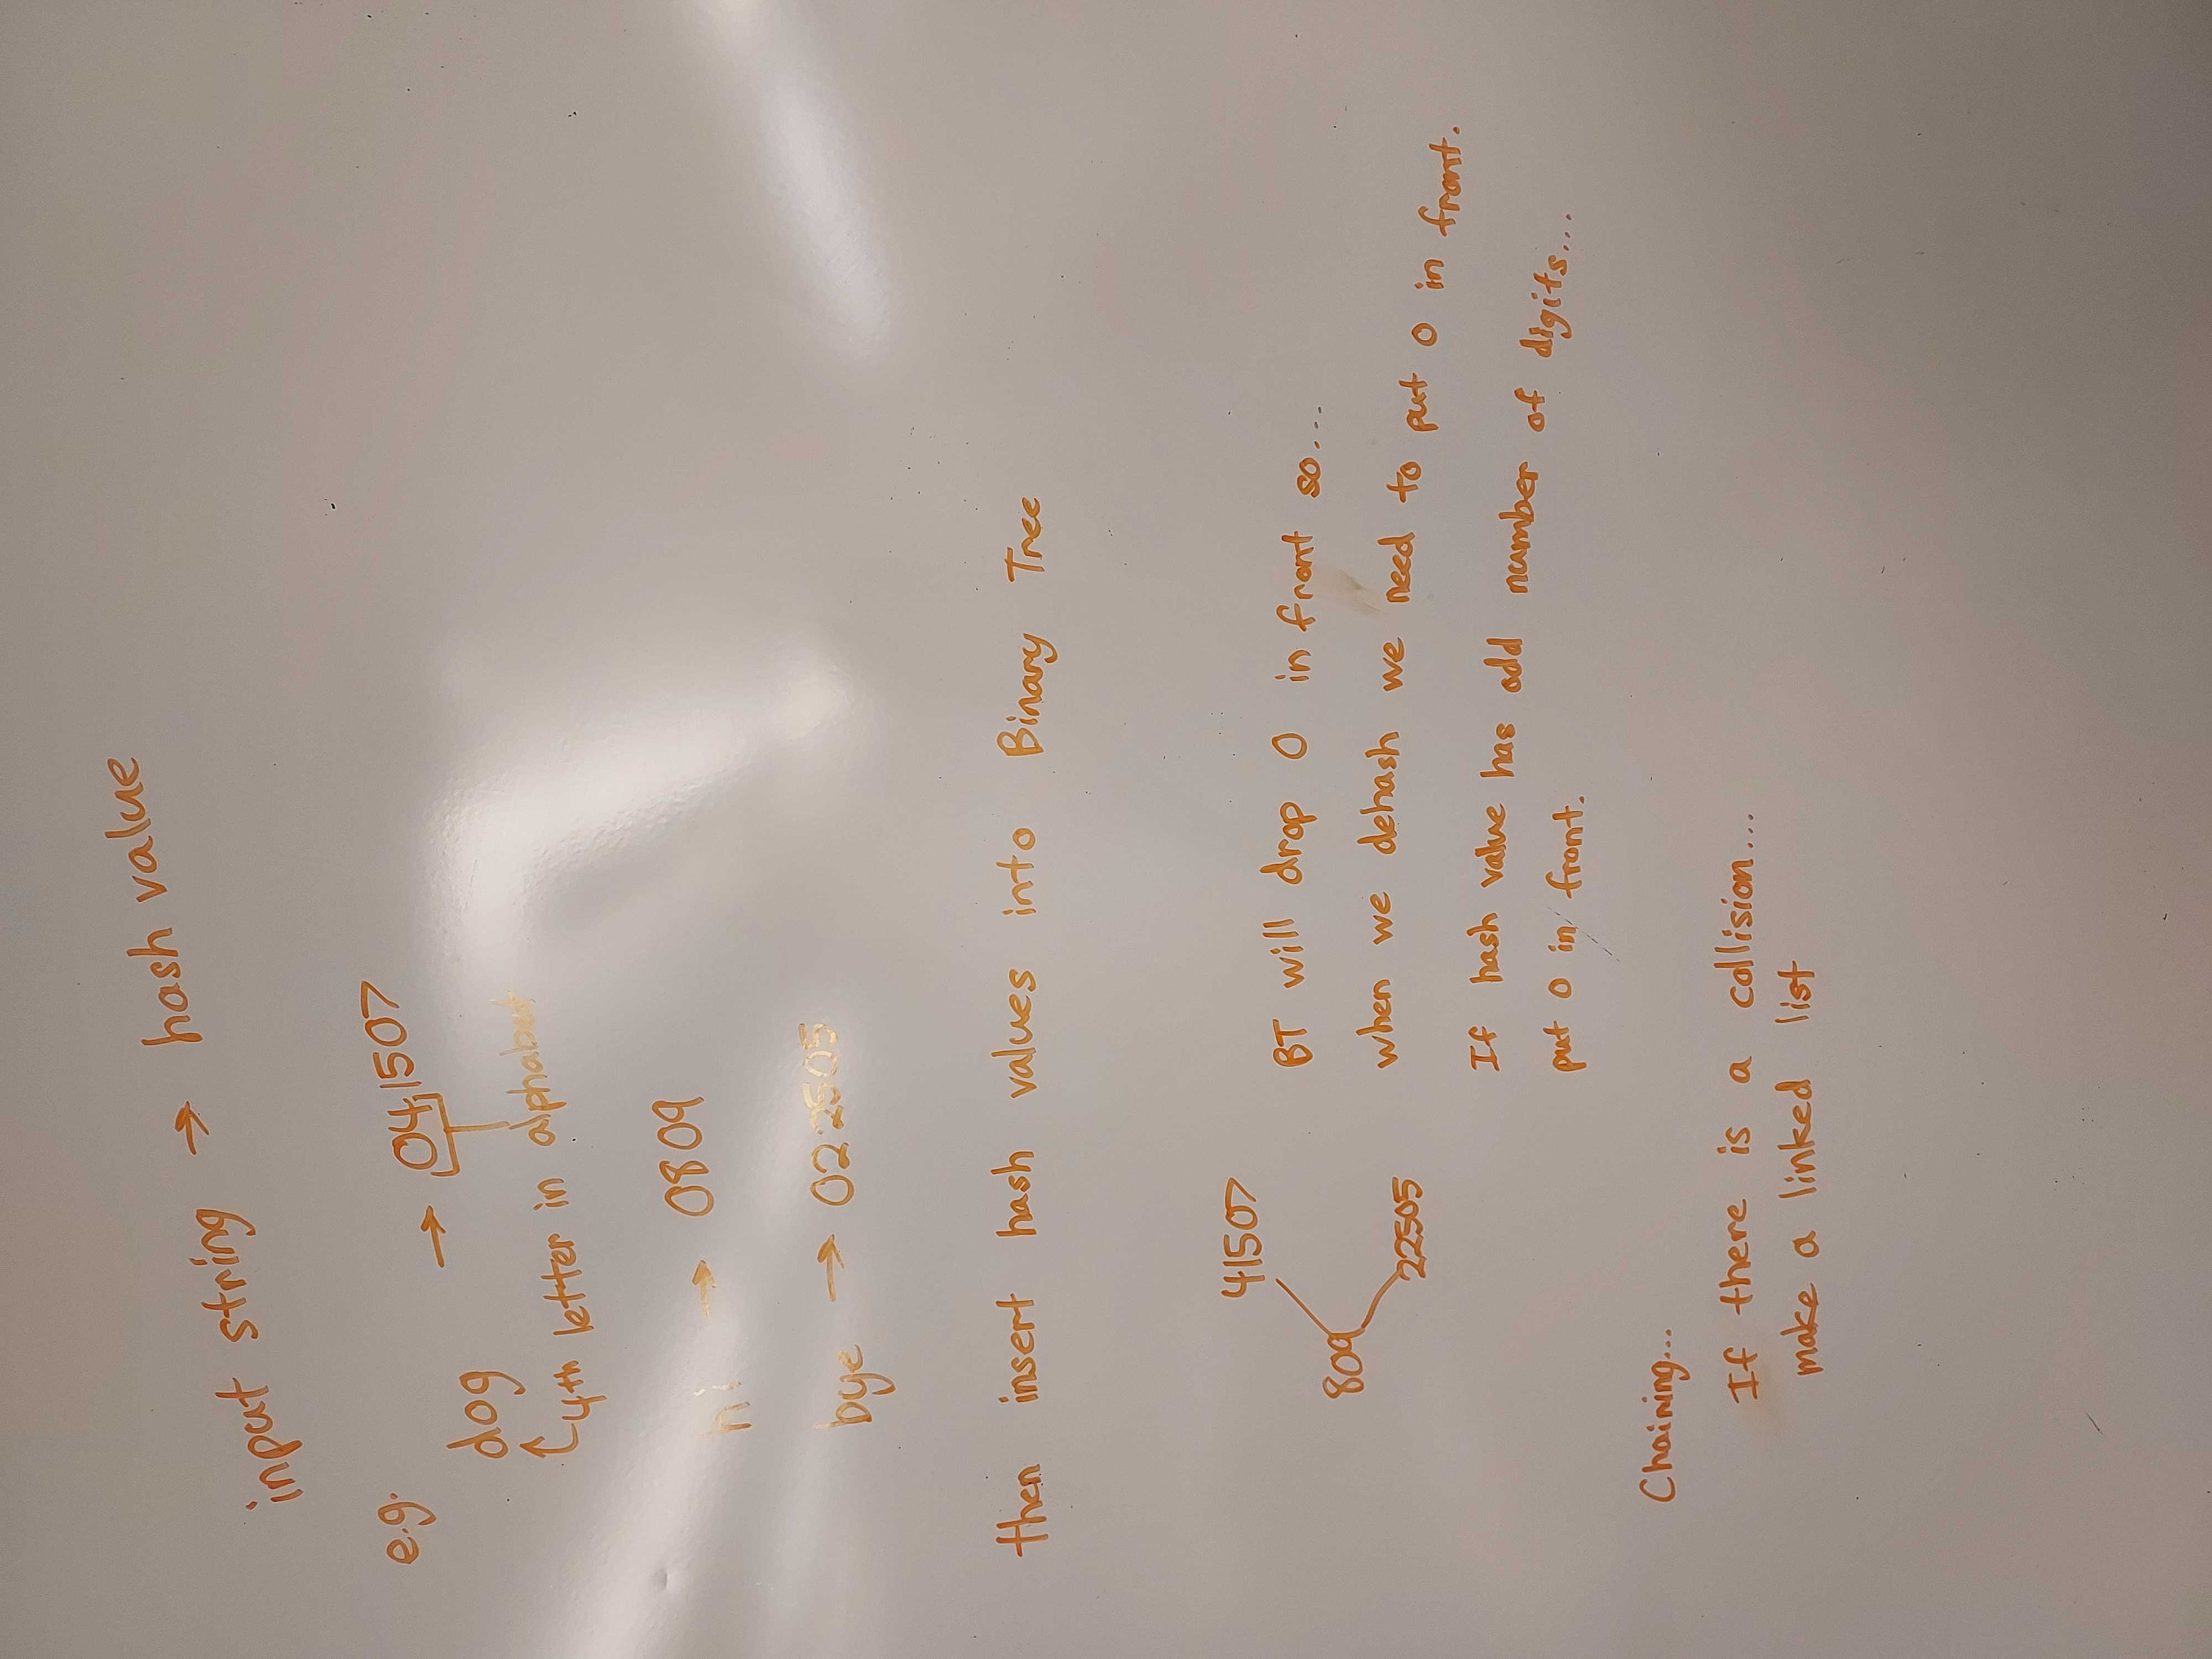 input string → hash value
e.g.
dog → 041507
4th letter in alphabet
hi → 0809
bye → 022505
then insert hash values into Binary Tree
41507
809
22505
BT will drop 0 in front so...
when we dehash we need to put 0 in front.
If hash value has odd number of digits...
put 0 in front.
Chaining...
If there is a collision...
make a linked list